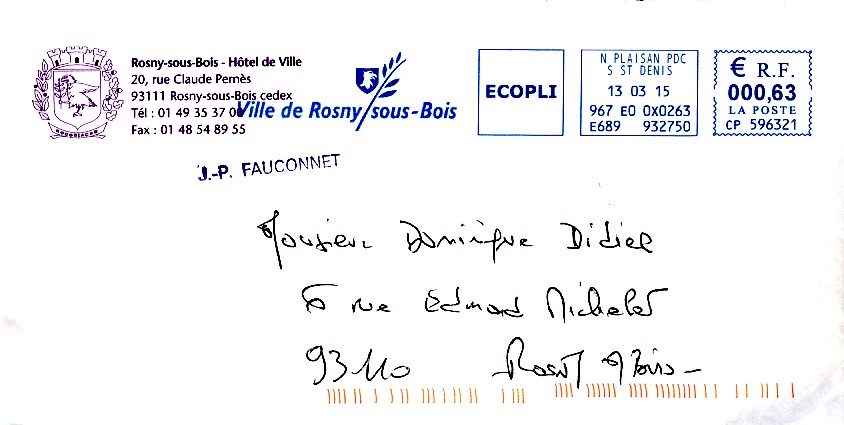 Rosny-sous-Bois - Hôtel de Ville
20, rue Claude Pernès
93111 Rosny-sous-Bois cedex
Tél : 01 49 35 37 00
Fax : 01 48 54 89 55
Ville de Rosny/sous-Bois
ECOPLI
N PLAISAN PDC
S ST DENIS
13 03 15
967 E0 0X0263
E689 932750
€ R.F.
000,63
LA POSTE
CP 596321
J.-P. FAUCONNET
Monsieur Dominique Didier
6 rue Edmond Michelet
93110 Rosny s/Bois